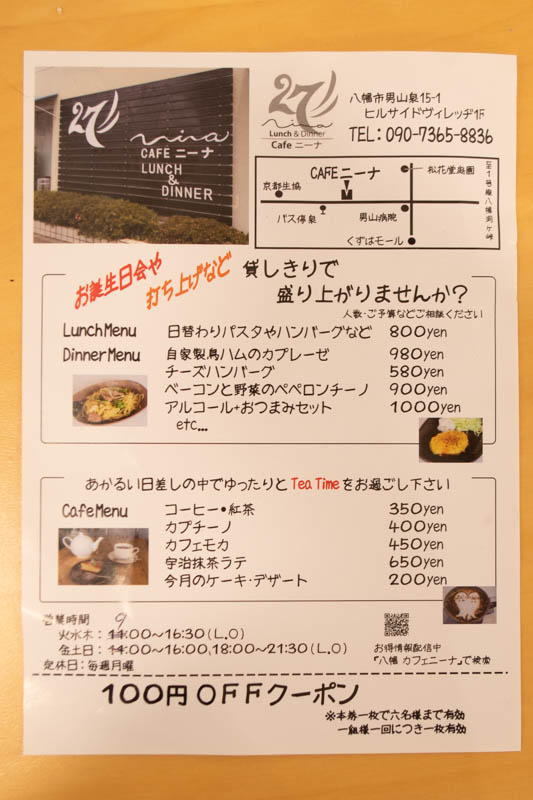 27
Nina
CAFE ニーナ
LUNCH
&
DINNER
27
Nina
Lunch & Dinner
Cafe ニーナ
八幡市男山泉15-1
ヒルサイドヴィレッヂ1F
TEL: 090-7365-8836
CAFE ニーナ
京都生協
バス停泉
男山病院
松花堂庭園
くずはモール
至1号線八幡洞ヶ峠
お誕生日会や
打ち上げなど
貸しきりで
盛り上がりませんか?
人数・ご予算などご相談ください
Lunch Menu 日替わりパスタやハンバーグなど 800yen
Dinner Menu 自家製鳥ハムのカプレーゼ 980yen
チーズハンバーグ 580yen
ベーコンと野菜のペペロンチーノ 900yen
アルコール+おつまみセット 1000yen
etc...
あかるい日差しの中でゆったりと Tea Time をお過ごし下さい
Cafe Menu コーヒー・紅茶 350yen
カプチーノ 400yen
カフェモカ 450yen
宇治抹茶ラテ 650yen
今月のケーキ・デザート 200yen
営業時間 9
火水木: 11:00~16:30(L.O)
金土日: 11:00~16:00,18:00~21:30(L.O)
定休日:毎週月曜
お得情報配信中
「八幡 カフェニーナ」で検索
100円OFFクーポン
※本券一枚で六名様まで有効
一組様一回につき一枚有効